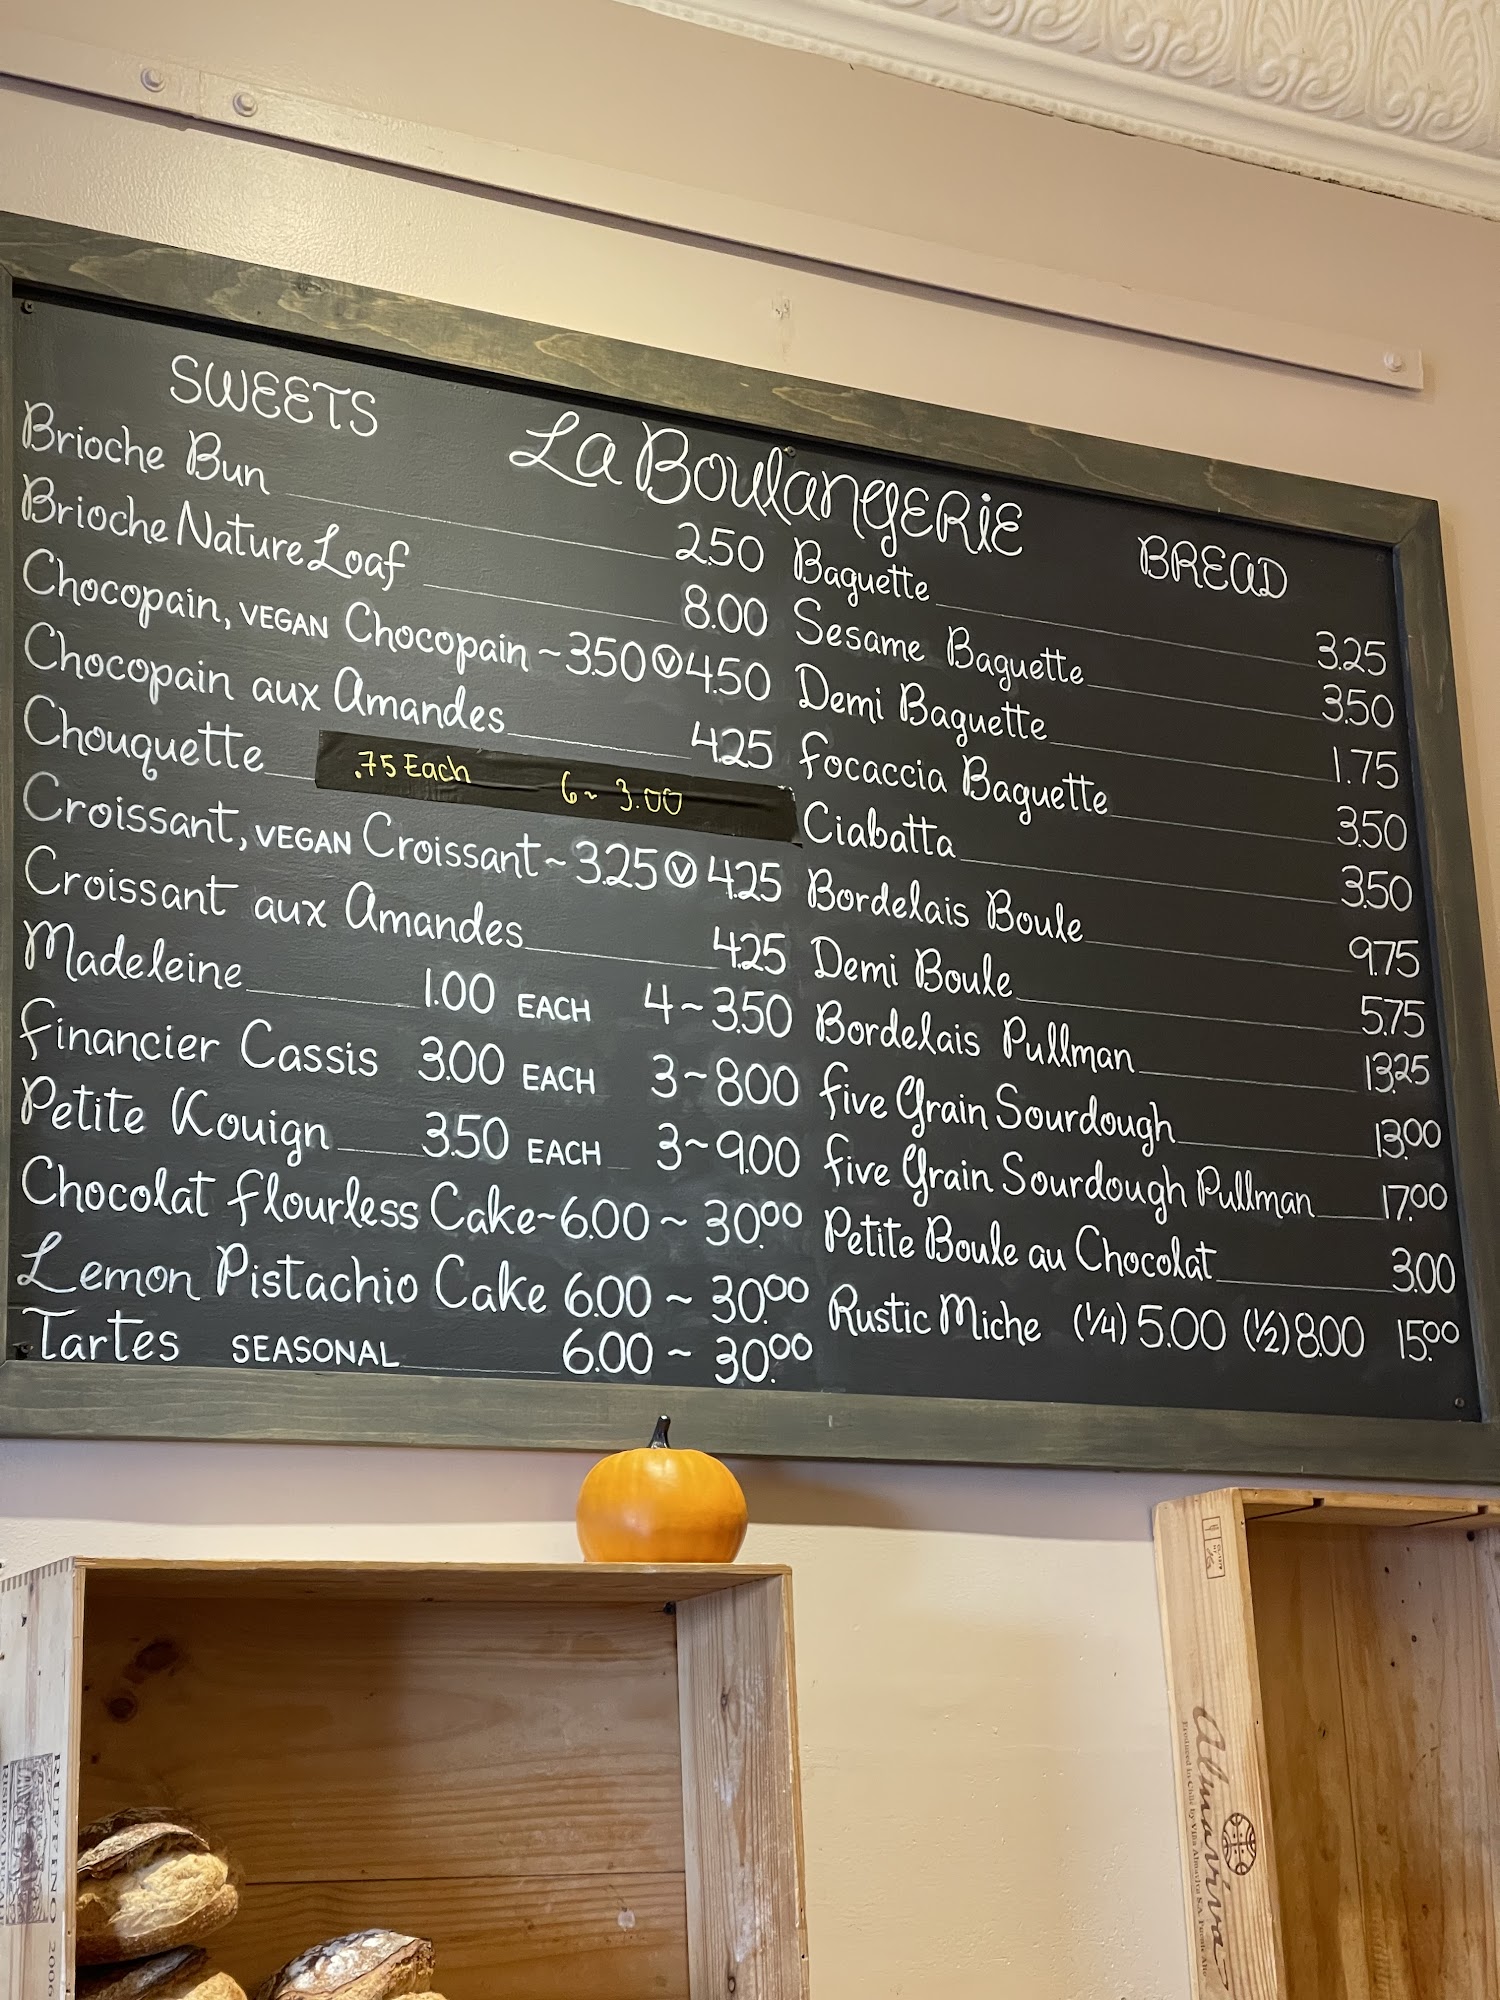 La Boulangerie
SWEETS
Brioche Bun 2.50
Brioche Nature Loaf 8.00
Chocopain, VEGAN Chocopain ~ 3.50 Ⓥ 4.50
Chocopain aux Amandes 4.25
Chouquette .75 Each 6~ 3.00
Croissant, VEGAN Croissant ~ 3.25 Ⓥ 4.25
Croissant aux Amandes 4.25
Madeleine 1.00 EACH 4~3.50
Financier Cassis 3.00 EACH 3~8.00
Petite Kouign 3.50 EACH 3~9.00
Chocolat Flourless Cake ~ 6.00 ~ 30.00
Lemon Pistachio Cake 6.00 ~ 30.00
Tartes SEASONAL 6.00 ~ 30.00
BREAD
Baguette 3.25
Sesame Baguette 3.50
Demi Baguette 1.75
Focaccia Baguette 3.50
Ciabatta 3.50
Bordelais Boule 9.75
Demi Boule 5.75
Bordelais Pullman 13.25
Five Grain Sourdough 13.00
Five Grain Sourdough Pullman 17.00
Petite Boule au Chocolat 3.00
Rustic Miche (1/4) 5.00 (1/2) 8.00 15.00
RUFFINO 2006
RISERVA DUCALE
Almaviva